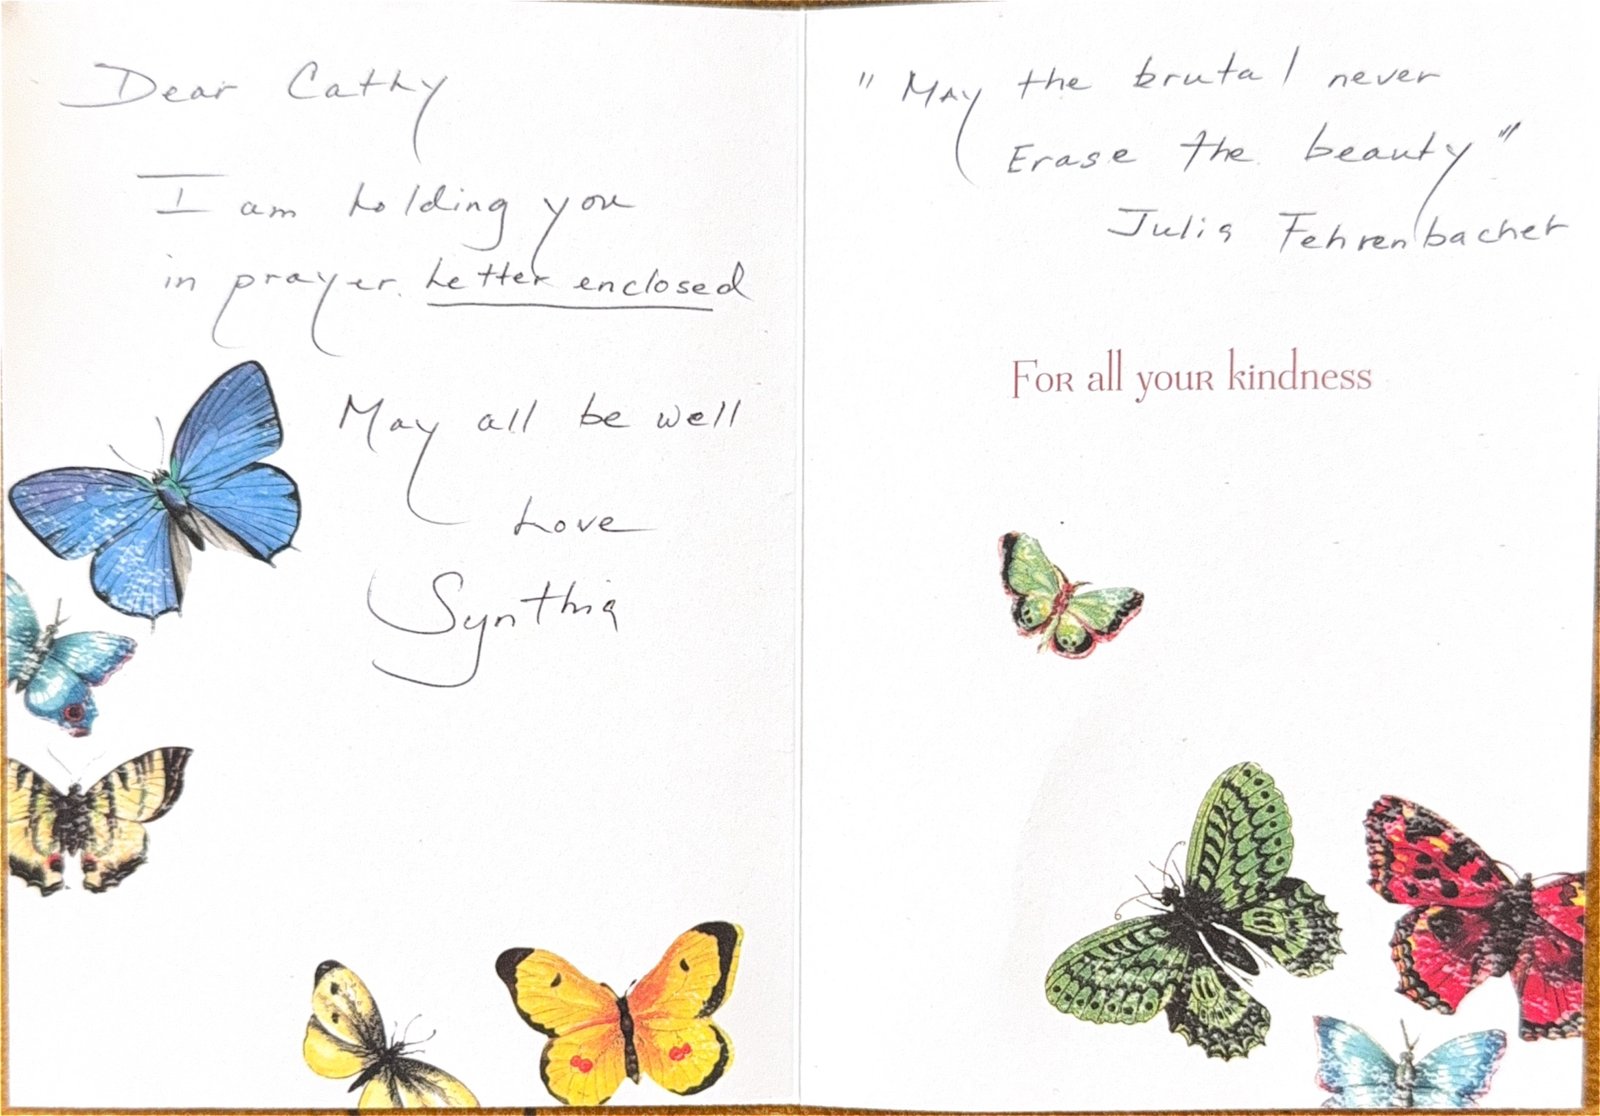 Dear Cathy
I am holding you
in prayer. Letter enclosed
May all be well
Love
Synthia
"May the brutal never
Erase the beauty"
Julia Fehrenbacher
For all your kindness